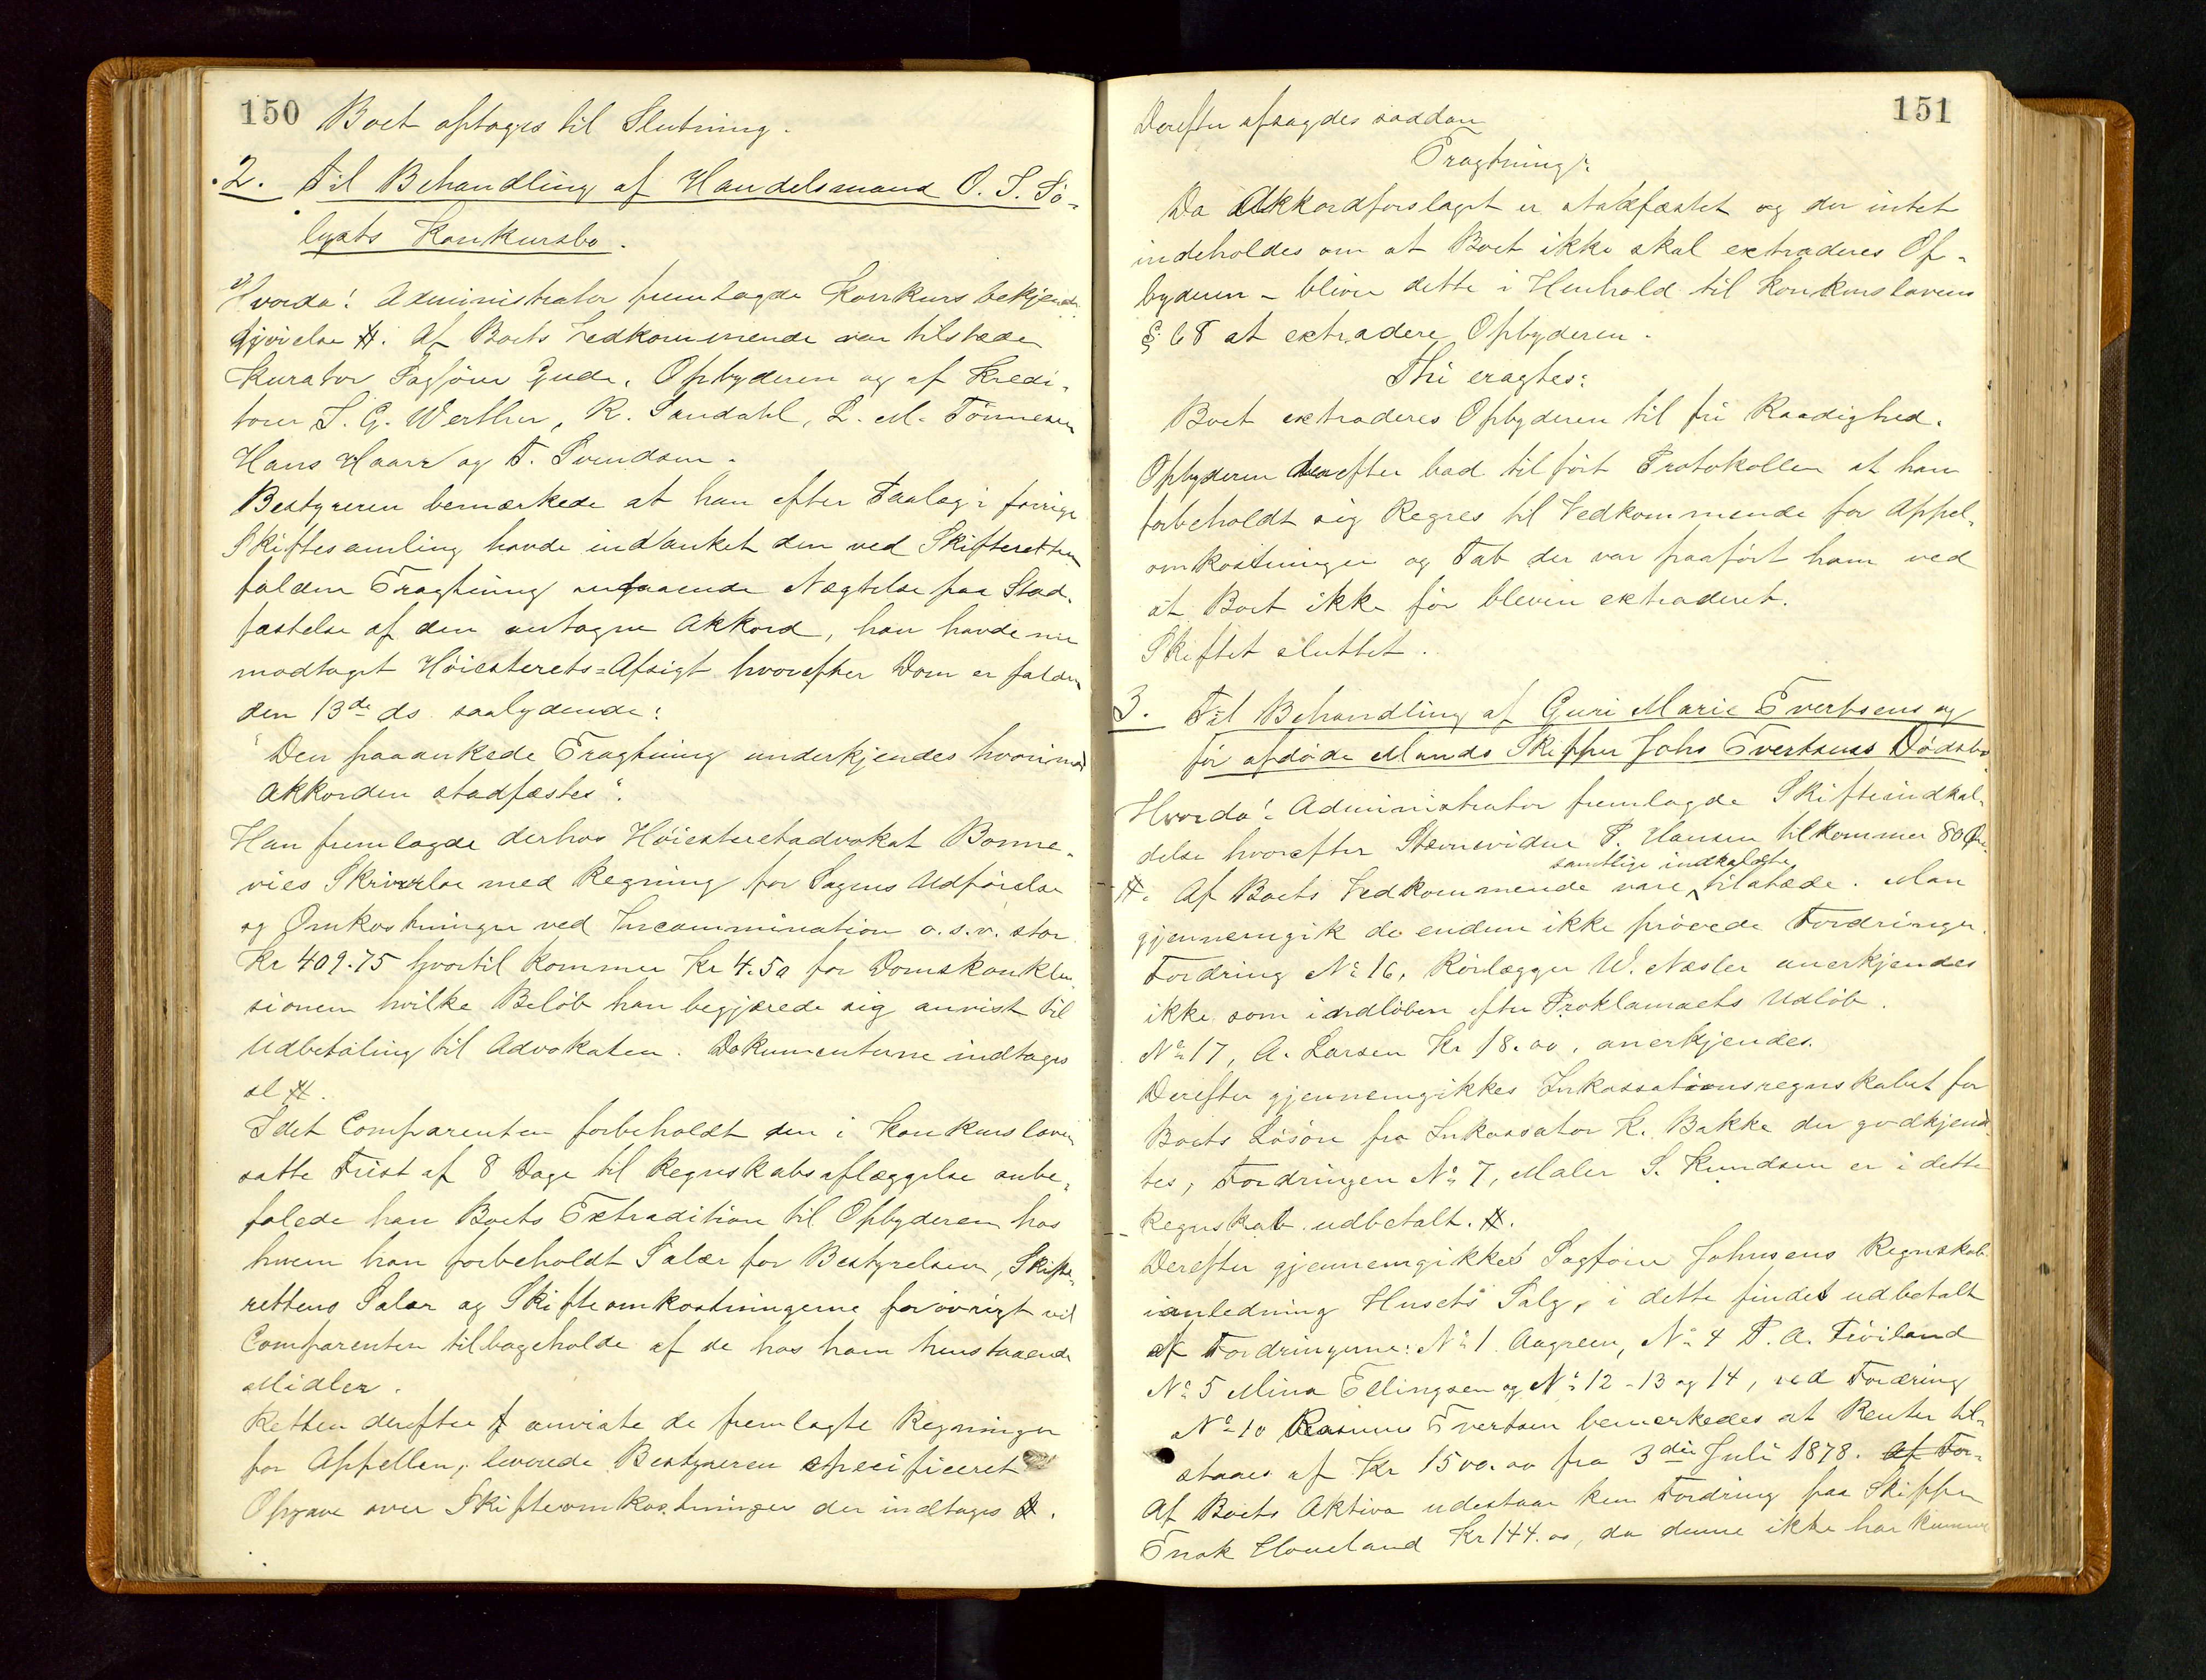 150
Boet optages til Slutning.
2. Til Behandling af Handelsmand O. S. Sö-
lyats Konkursbo.
Hvorda! Administrator fremlagde Konkursbekjendt-
gjörelse #. Af Boets Vedkommende var tilstede
Kurator Sagförer Gude, Opbyderen og af Kredi-
torer S. G. Werther, R. Sandahl, L. M. Tönnesen
Hans Haarr og T. Svendsen.
Bestyreren bemærkede at han efter Paalæg i forrige
Skiftesamling havde indanket den ved Skifteretten
faldne Eragtning angaaende Nægtelse paa Stad-
fæstelse af den antagne Akkord, han havde nu
modtaget Höiesterets-Afsigt hvorefter Dom er falden
den 13de ds. saalydende:
"Den paaankede Eragtning underkjendes hvorimod
Akkorden stadfæstes".
Han fremlagde derhos Höiesteretsadvokat Bonne-
vies Skrivelse med Regning for Sagens Udförelse
og Omkostninger ved Incammination o.s.v. stor
Kr 409.75 hvortil kommer Kr 4.50 for Domskonklu-
sionen hvilke Belöb han begjærede sig anvist til
Udbetaling til Advokaten. Dokumenterne indtages
sl #.
Idet Comparenten forbeholdt den i Konkursloven
satte Frist af 8 Dage til Regnskabsaflæggelse anbe-
falede han Boets Extradition til Opbyderen hos
hvem han forbeholdt Salær for Bestyrelsen, Skifte-
rettens Salær og Skifteomkostningerne forövrigt vil
Comparenten tilbageholde af de hos ham henstaaende
Midler.
Retten derefter anviste de fremlagte Regninger
for Appellen, leverede Bestyreren specificeret
Opgave over Skifteomkostninger der indtages #.
151
Derefter afsagdes saadan
Eragtning:
Da Akkordforslaget er stadfæstet og der intet
indeholdes om at Boet ikke skal extraderes Op-
byderen - bliver dette i Henhold til Konkurslovens
§ 68 at extradere Opbyderen.
Thi eragtes:
Boet extraderes Opbyderen til fri Raadighed.
Opbyderen derefter bad tilfört Protokollen at han
forbeholdt sig Regres til Vedkommende for Appel-
omkostninger og Tab der var paafört ham ved
at Boet ikke för bleven extraderet.
Skiftet sluttet.
3. Til Behandling af Guri Marie Evertsens og
för afdöde Mands Skipper Johs Evertsens Dödsbo
Hvorda! Administrator fremlagde Skifteindkal-
delse hvorefter Stævnevidner P. Hansen tilkommer 80 Öre
samtlige indkaldte
#. Af Boets Vedkommende vare tilstede. Man
gjennemgik de endnu ikke prövede Fordringer.
Fordring No 16, Rörlægger W. Næsler anerkjendes
ikke som indlöben efter Proklamaets Udlöb.
No 17, A. Larsen Kr 18.00, anerkjendes.
Derefter gjennemgikkes Inkassationsregnskabet for
Boets Lösöre fra Inkassator K. Bakke der godkjend-
tes, Fordringen No 7, Maler S. Knudsen er i dette
Regnskab udbetalt. #.
Derefter gjennemgikkes Sagförer Johnsens Regnskab
i anledning Husets Salg, i dette findes udbetalt
af Fordringerne: No 1 Aagreen, No 4 P. A. Tveiland
No 5 Mina Ellingsen og No 12-13 og 14, ved Fordring
No 10 Rasmus Evertsen bemærkedes at Renter til-
staaes af Kr 1500.00 fra 3die Juli 1878. Af For-
Af Boets Aktiva udestaar kun Fordring paa Skipper
Enok Haveland Kr 144.00, da denne ikke har kunnet